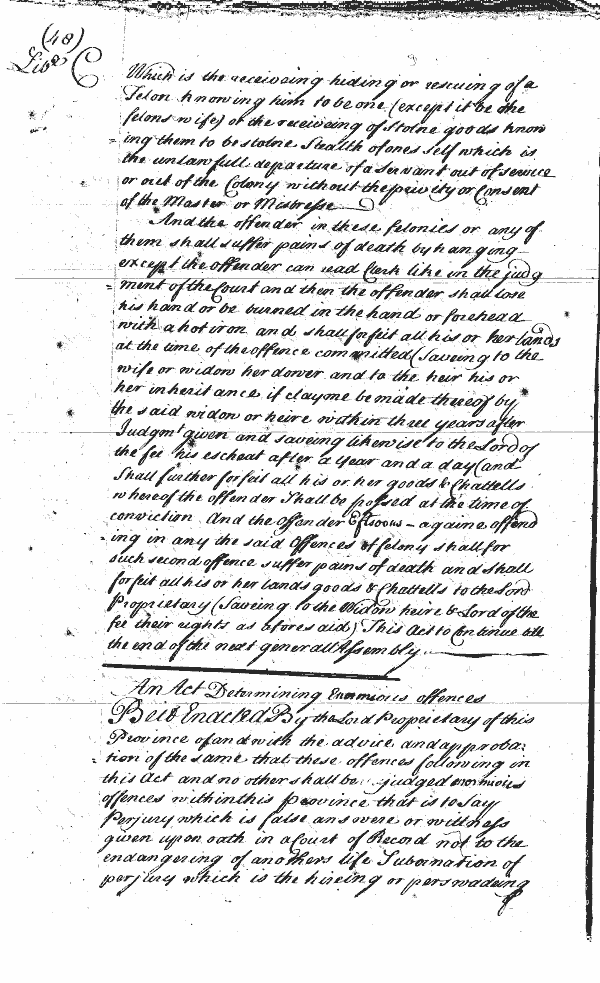 (48)
Libr C
Which is the receiveing hiding or rescuing of a
Felon knowing him to be one (except it be the
felons wife) or the receiveing of Stolne goods know
ing them to be stolne Stealth of ones self which is
the unlawfull departure of a Servant out of service
or out of the Colony without the privity or Consent
of the Master or Mistresse
And the offender in these felonies or any of
them shall suffer pains of death by hanging
except the offender can read Clerk like in the judg
ment of the Court and then the offender shall lose
his hand or be burned in the hand or forehead
with a hot iron and shall forfeit all his or her lands
at the time of the offence committed (Saveing to the
wife or widow her dower and to the heir his or
her inheritance if clayme be made thereof by
the said widow or heire within three years after
Judgmt given and saveing likewise to the Lord of
the fee his escheat after a year and a day (and
Shall further forfeit all his or her goods & Chattells
whereof the offender Shall be possed at the time of
conviction And the offender Eftsoons - againe offend
ing in any the said Offences of felony shall for
such second offence suffer pains of death and shall
forfeit all his or her lands goods & Chattells to the Lord
Proprietary (Saveing to the Widow heire & Lord of the
fee their rights as aforesaid) This Act to Continue till
the end of the next generall Assembly.
An Act Determining Enormious offences
Be it Enacted By the Lord Proprietary of this
Province of and with the advice and approba:
tion of the same that these offences following in
this Act and no other shall be judged enormious
offences within this province that is to Say
Perjury which is false answere or wittness
given upon oath in a Court of Record not to the
endangering of anothers life Subornation of
perjury which is the hireing or perswadeing
of